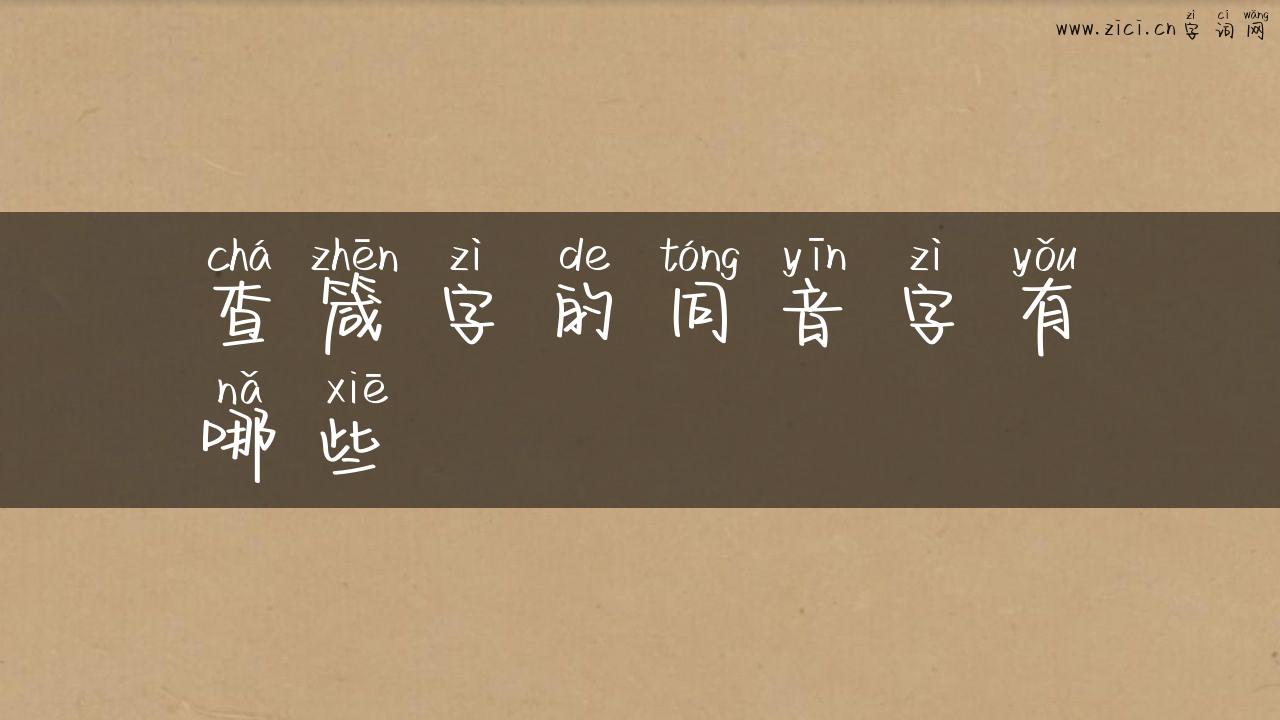 zì cí wǎng
www.zici.cn 字词网
chá zhēn zì de tóng yīn zì yǒu
查箴字的同音字有
nǎ xiē
哪些